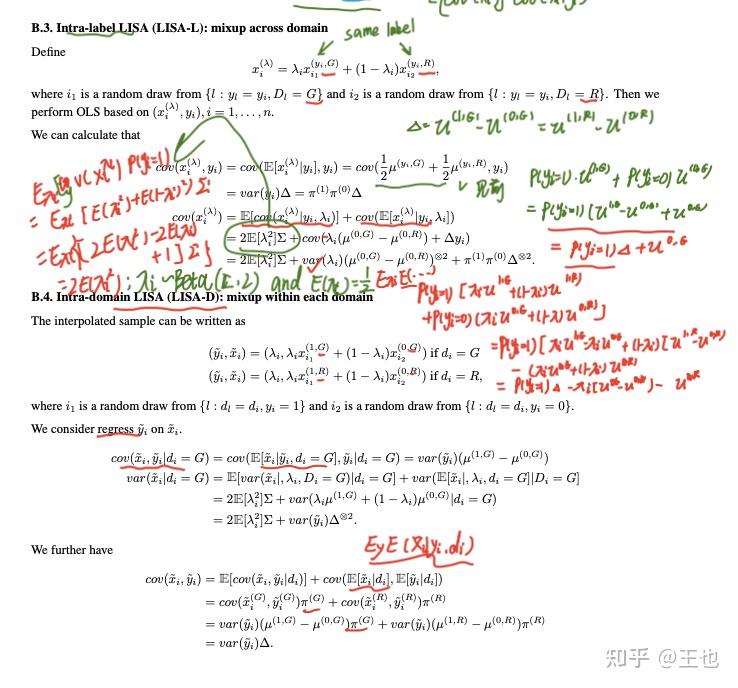 B.3. Intra-label LISA (LISA-L): mixup across domain
same label
Define
x_i^{(λ)} = λ_i x_{i_1}^{(y_i,G)} + (1 − λ_i)x_{i_2}^{(y_i,R)},
where i_1 is a random draw from {l : y_l = y_i, D_l = G} and i_2 is a random draw from {l : y_l = y_i, D_l = R}. Then we
perform OLS based on (x_i^{(λ)}, y_i), i = 1, . . . , n.
Δ = u^{(1,G)} - u^{(0,G)} = u^{(1,R)} - u^{(0,R)}
We can calculate that
cov(x_i^{(λ)}, y_i) = cov(𝔼[x_i^{(λ)}|y_i], y_i) = cov(½μ^{(y_i,G)} + ½μ^{(y_i,R)}, y_i)
= var(y_i)Δ = π^{(1)}π^{(0)}Δ
cov(x_i^{(λ)}) = 𝔼[cov(x_i^{(λ)}|y_i, λ_i)] + cov(𝔼[x_i^{(λ)}|y_i, λ_i])
= 2𝔼[λ_i^2]Σ + cov(λ_i(μ^{(0,G)} − μ^{(0,R)}) + Δy_i)
= 2𝔼[λ_i^2]Σ + var(λ_i)(μ^{(0,G)} − μ^{(0,R)})^{⊗2} + π^{(1)}π^{(0)}Δ^{⊗2}.
P(y_i=1)·u^{1,G} + P(y_i=0)u^{0,G}
= P(y_i=1)(u^{1,G} - u^{0,G}) + u^{0,G}
= P(y_i=1)Δ + u^{0,G}
P(y_i=1)
= 2E(λ_i^2); λ_i ~Beta(2,2) and E(λ_i)=½
B.4. Intra-domain LISA (LISA-D): mixup within each domain
The interpolated sample can be written as
(ỹ_i, x̃_i) = (λ_i, λ_i x_{i_1}^{(1,G)} + (1 − λ_i)x_{i_2}^{(0,G)}) if d_i = G
(ỹ_i, x̃_i) = (λ_i, λ_i x_{i_1}^{(1,R)} + (1 − λ_i)x_{i_2}^{(0,R)}) if d_i = R,
where i_1 is a random draw from {l : d_l = d_i, y_i = 1} and i_2 is a random draw from {l : d_l = d_i, y_i = 0}.
We consider regress ỹ_i on x̃_i.
cov(x̃_i, ỹ_i|d_i = G) = cov(𝔼[x̃_i|ỹ_i, d_i = G], ỹ_i|d_i = G) = var(ỹ_i)(μ^{(1,G)} − μ^{(0,G)})
var(x̃_i|d_i = G) = 𝔼[var(x̃_i|, λ_i, D_i = G)|d_i = G] + var(𝔼[x̃_i|, λ_i, d_i = G]|D_i = G]
= 2𝔼[λ_i^2]Σ + var(λ_iμ^{(1,G)} + (1 − λ_i)μ^{(0,G)}|d_i = G)
= 2𝔼[λ_i^2]Σ + var(ỹ_i)Δ^{⊗2}.
We further have
E_yE(x̃_i|y_i,d_i)
cov(x̃_i, ỹ_i) = 𝔼[cov(x̃_i, ỹ_i|d_i)] + cov(𝔼[x̃_i|d_i], 𝔼[ỹ_i|d_i])
= cov(x̃_i^{(G)}, ỹ_i^{(G)})π^{(G)} + cov(x̃_i^{(R)}, ỹ_i^{(R)})π^{(R)}
= var(ỹ_i)(μ^{(1,G)} − μ^{(0,G)})π^{(G)} + var(ỹ_i)(μ^{(1,R)} − μ^{(0,R)})π^{(R)}
= var(ỹ_i)Δ.
知乎 @王也